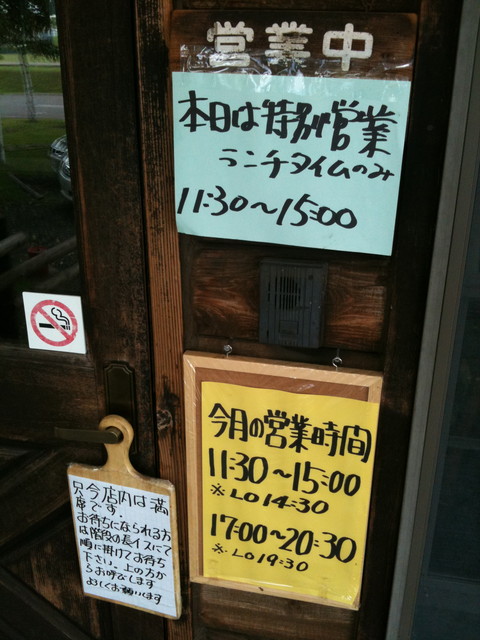 営業中
本日は特別営業
ランチタイムのみ
11:30～15:00
今月の営業時間
11:30～15:00
※LO 14:30
17:00～20:30
※LO 19:30
只今店内は満
席です。
お待ちになられる方
は階段の長イスにて
順に掛けてお待ち
下さい。上の方か
らお呼びします
よろしくお願いします